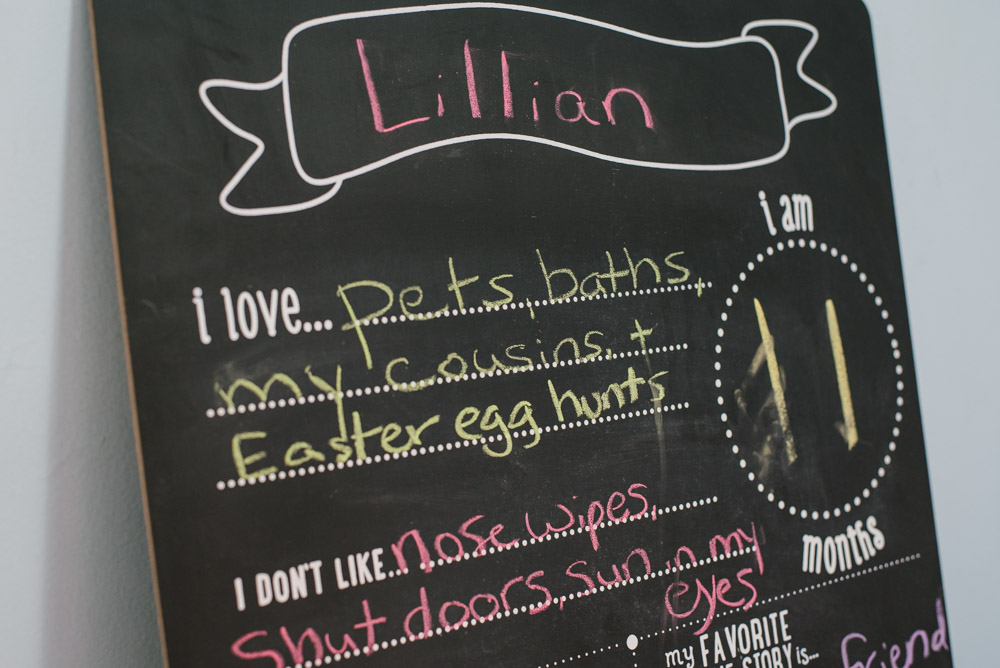 Lillian
i am
11
months
i love... pets, baths,
my cousins, +
Easter egg hunts
I DON'T LIKE... nose wipes,
shut doors, sun in my
eyes
my FAVORITE
STORY is... friend